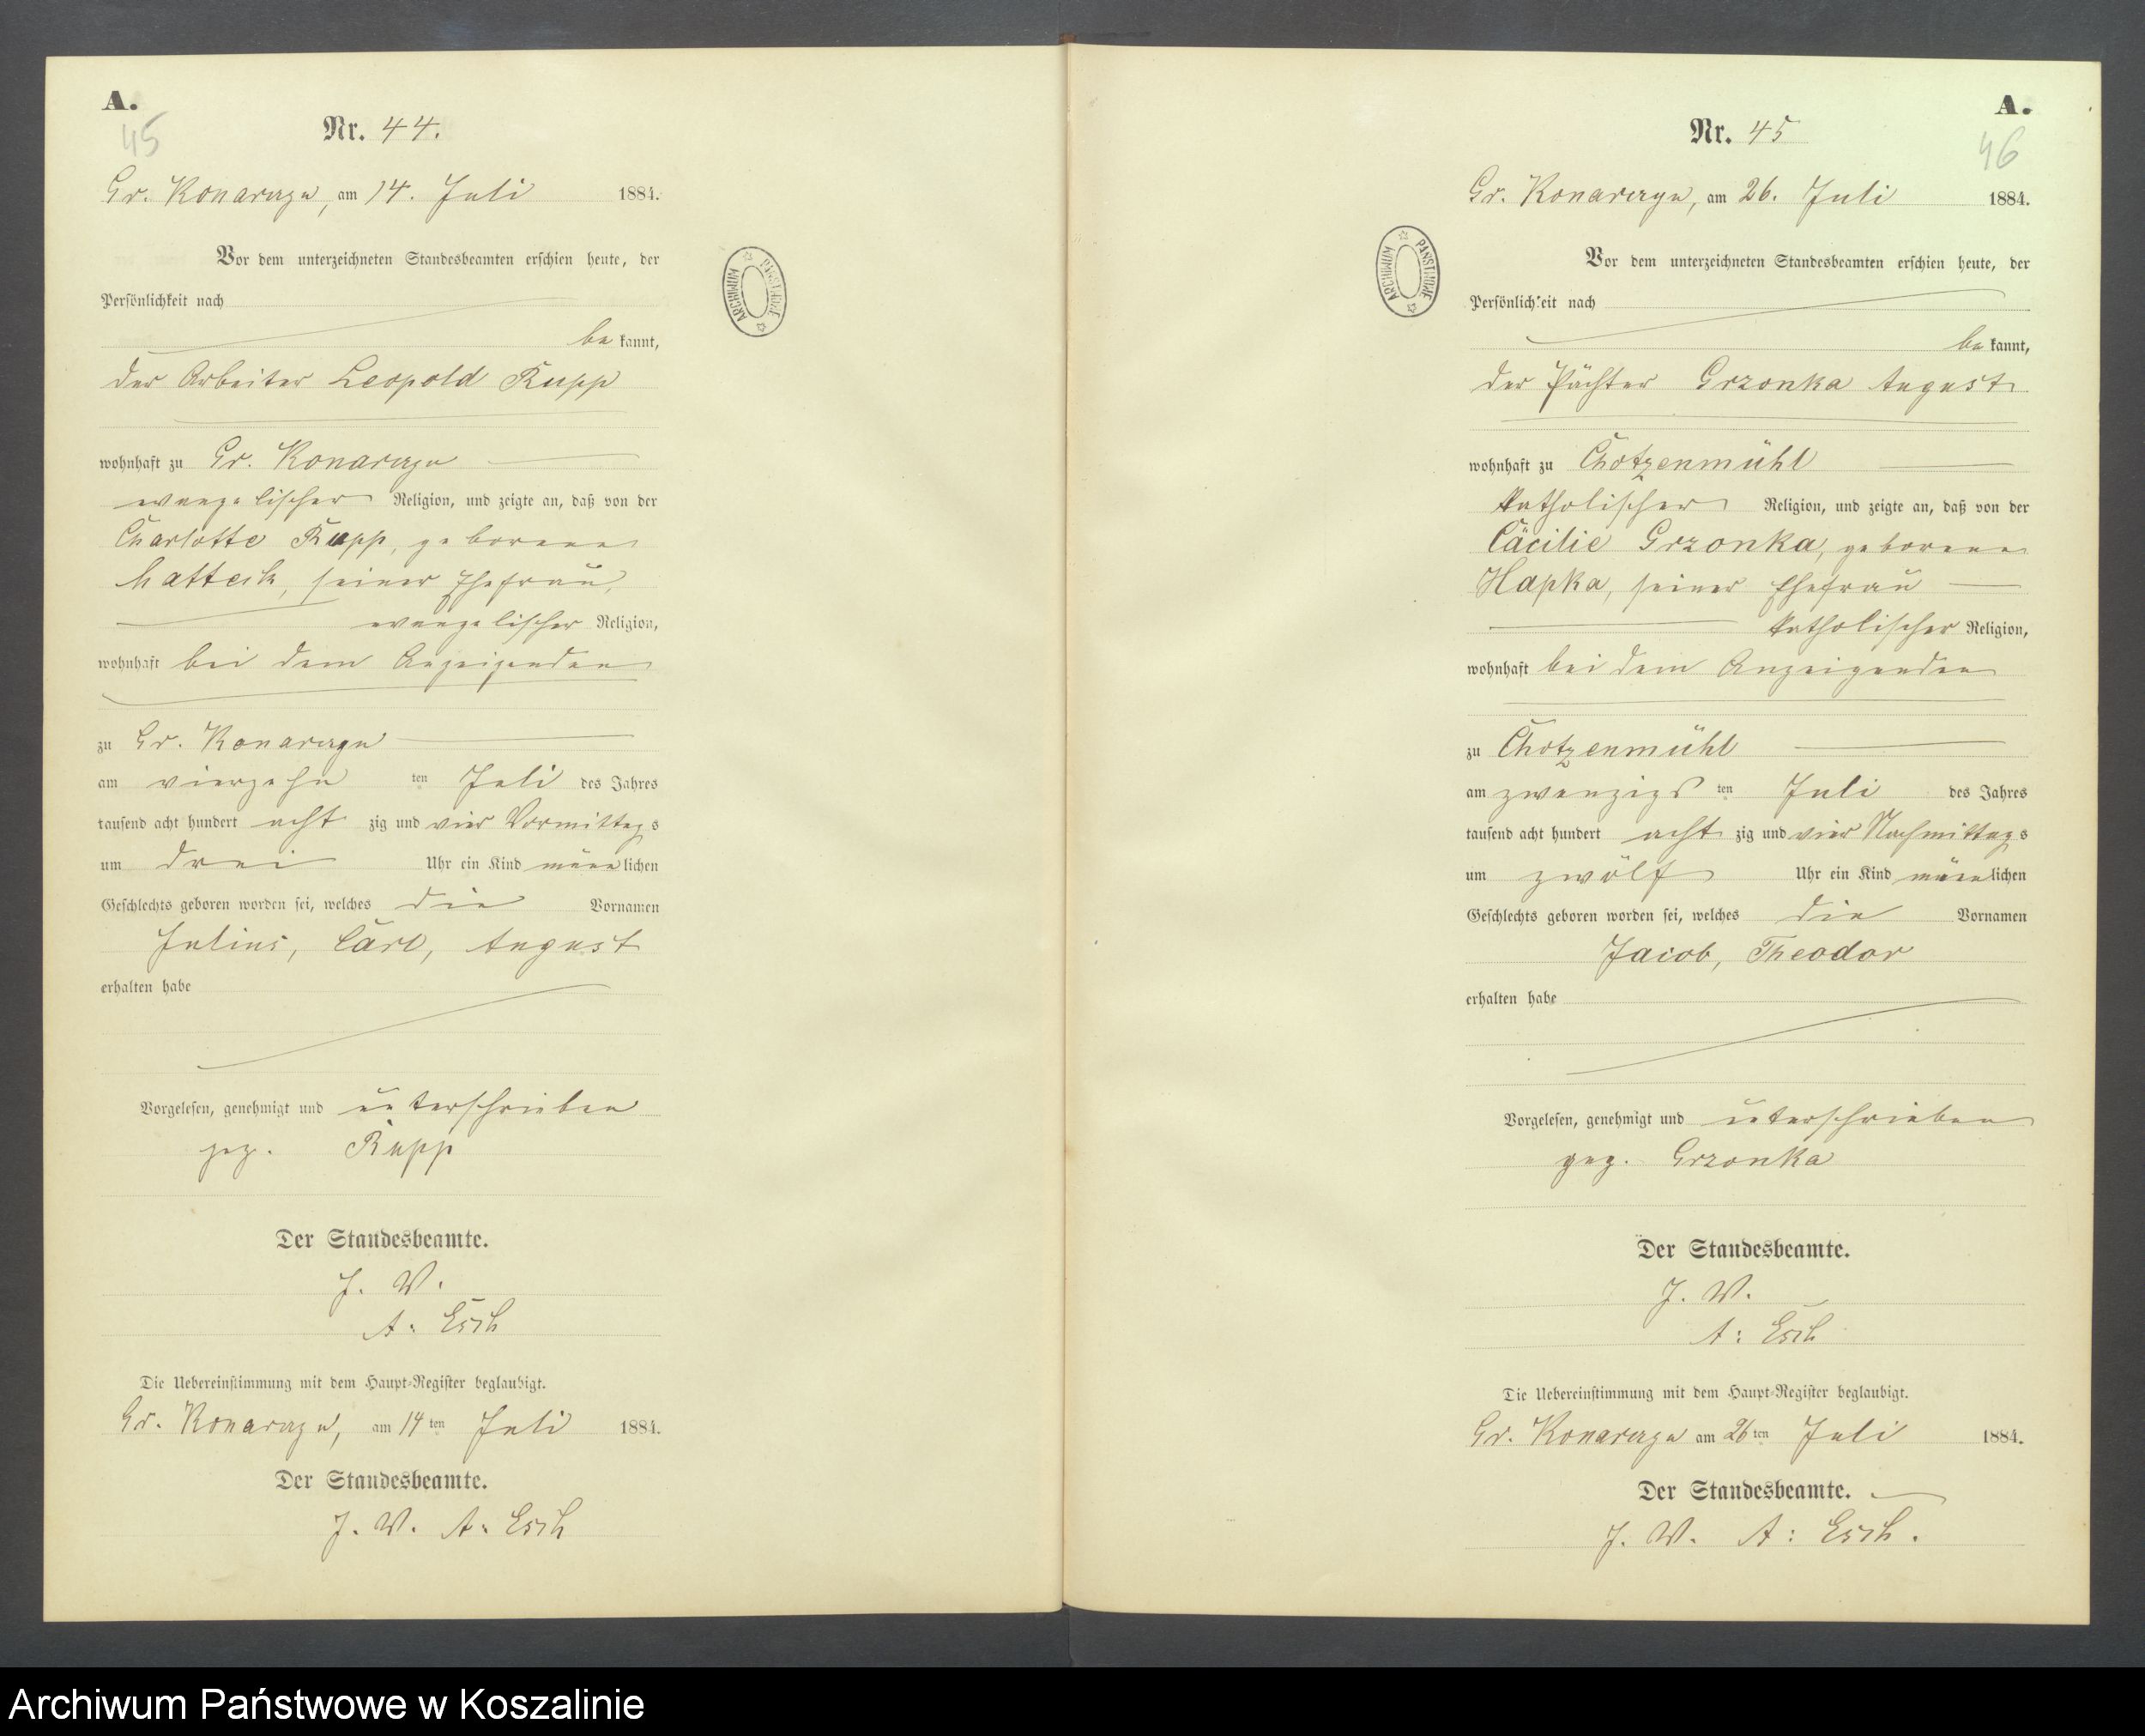 A.
45
Nr. 44.
Gr. Konarczyn, am 14. Juli 1884.
Vor dem unterzeichneten Standesbeamten erschien heute, der
Persönlichkeit nach
be kannt,
der Arbeiter Leopold Rupp
wohnhaft zu Gr. Konarczyn
evangelischer Religion, und zeigte an, daß von der
Charlotte Rupp, geborene
seiner Ehefrau,
evangelischer Religion,
wohnhaft bei dem Anzeigenden
zu Gr. Konarczyn
am vierzehn ten Juli des Jahres
tausend acht hundert acht zig und vier Vormittags
um drei Uhr ein Kind männlichen
Geschlechts geboren worden sei, welches die Vornamen
Julius, Carl, August
erhalten habe
Vorgelesen, genehmigt und unterschrieben
gez. Rupp
Der Standesbeamte.
J. V.
A: Esch
Die Uebereinstimmung mit dem Haupt-Register beglaubigt.
Gr. Konarczyn, am 14 ten Juli 1884.
Der Standesbeamte.
J. V. A: Esch
ARCHIWUM PAŃSTWOWE
A.
46
Nr. 45
Gr. Konarczyn, am 26. Juli 1884.
Vor dem unterzeichneten Standesbeamten erschien heute, der
Persönlichkeit nach
be kannt,
der Pächter Grzonka August
wohnhaft zu Chotzenmühl
katholischer Religion, und zeigte an, daß von der
Cäcilie Grzonka, geborene
Hapka, seiner Ehefrau
katholischer Religion,
wohnhaft bei dem Anzeigenden
zu Chotzenmühl
am zwanzigs ten Juli des Jahres
tausend acht hundert acht zig und vier Nachmittags
um zwölf Uhr ein Kind männlichen
Geschlechts geboren worden sei, welches die Vornamen
Jacob, Theodor
erhalten habe
Vorgelesen, genehmigt und unterschrieben
gez. Grzonka
Der Standesbeamte.
J. V.
A: Esch
Die Uebereinstimmung mit dem Haupt-Register beglaubigt.
Gr. Konarczyn am 26 ten Juli 1884.
Der Standesbeamte.
J. V. A: Esch.
ARCHIWUM PAŃSTWOWE
Archiwum Państwowe w Koszalinie